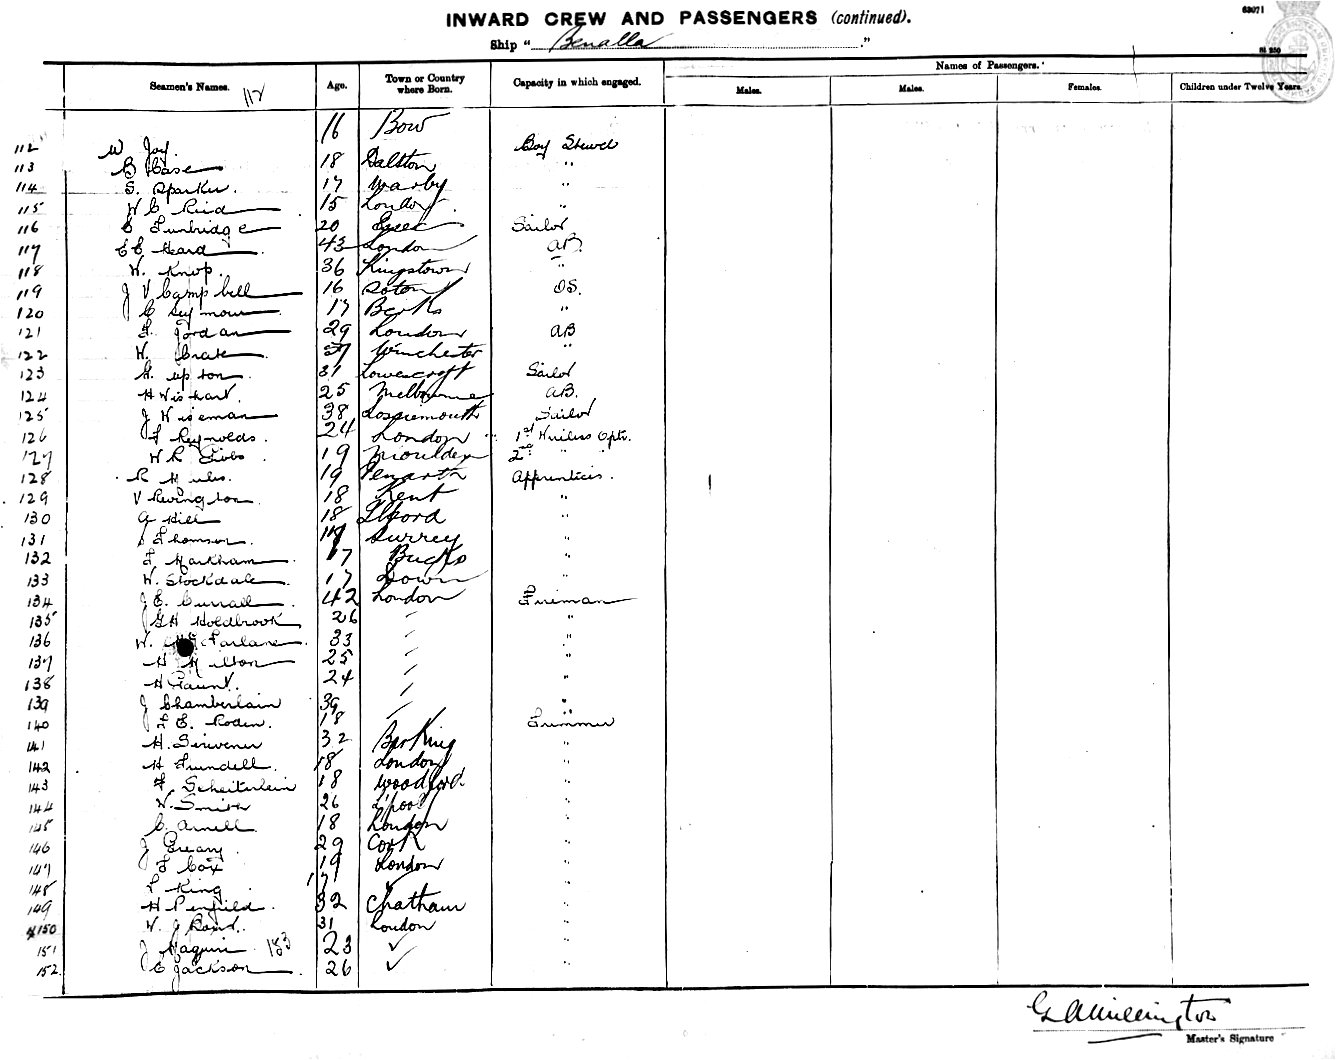 63071
INWARD CREW AND PASSENGERS (continued).
Ship " Benalla "
Seamen's Names. Age. Town or Country where Born. Capacity in which engaged. Names of Passengers.
Males. Males. Females. Children under Twelve Years.
112 W Joy. 16 Bow Boy Stewd
113 B Case 18 Dalston "
114 S. Sparker. 17 "
115 W C Reid 15 London "
116 C Tunbridge 20 Essex Sailor
117 E C Heard 43 London AB.
118 W. Knop. 36 Kingstown "
119 J V Campbell 16 Soton OS.
120 C Seymour 17 Berks "
121 F. Jordan 29 London AB
122 W. Winchester "
123 H. Upton 31 Lowescroft Sailor
124 H Wishart. 25 Melbourne AB.
125 J Wiseman 38 Lossiemouth Sailor
126 F Reynolds. 24 London 1st Wireless Optr.
127 W R 19 2nd " "
128 R 19 Penarth Apprentices.
129 V Revington 18 Kent "
130 A Hill 18 Ilford "
131 Thomson. Surrey "
132 F Markham 17 Bucks "
133 W. Stockdale 17 Down "
134 J E. Currall 42 London Fireman
135 G H Holdbrook 26 " "
136 W. McFarlane 33 " "
137 H Milton 25 " "
138 H Gaunt. 24 " "
139 J Chamberlain 39 " "
140 F E. Roden. 18 " Trimmer
141 H. Scrivener 32 Barking "
142 H Trundell. 18 London "
143 F Scheiterlein 18 Woodford. "
144 W. Smith 26 L'pool "
145 C. Arnell. 18 London "
146 J Creany 29 Cork "
147 F Cox 19 London "
148 L King 17 ✓ "
149 H Penfield. 32 Chatham "
150 W J Band. 31 London "
151 J Maguire 183 23 ✓ "
152 C Jackson 26 ✓ "
G A Millington
Master's Signature